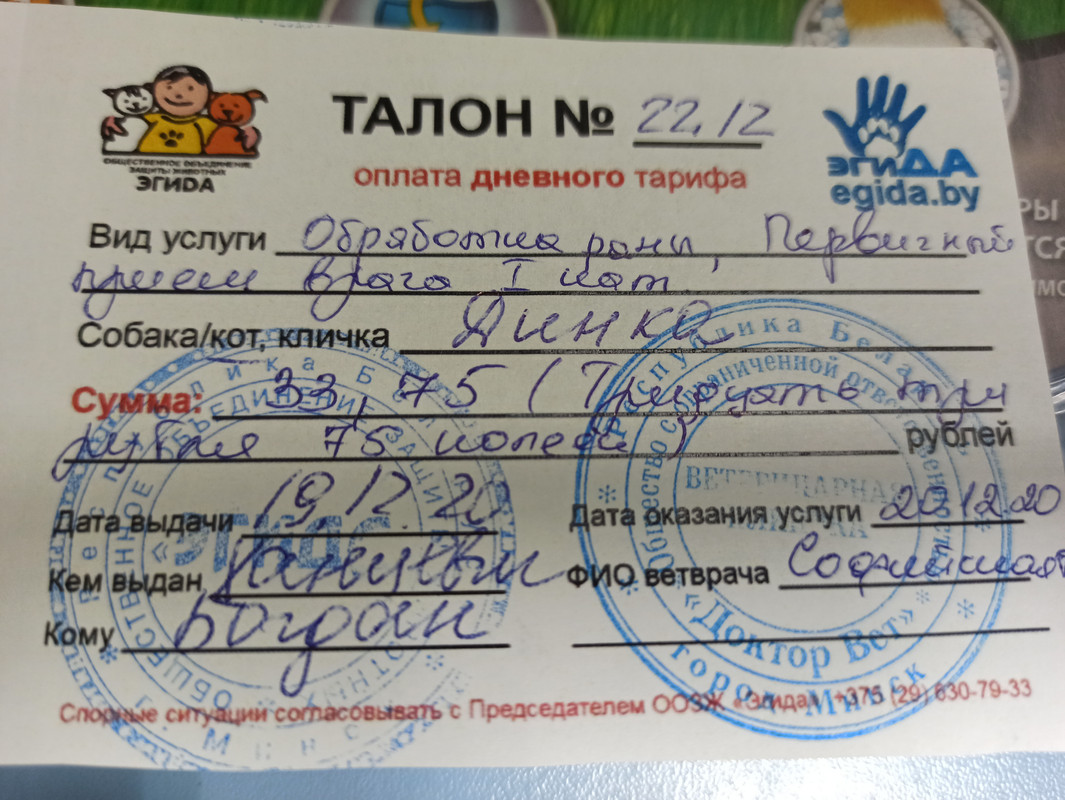 ОБЩЕСТВЕННОЕ ОБЪЕДИНЕНИЕ
ЗАЩИТЫ ЖИВОТНЫХ
ЭГИДА
ТАЛОН № 22.12
оплата дневного тарифа
эгиДА
egida.by
Вид услуги Обработка раны, Первичный
прием врача I кат
Собака/кот, кличка Динка
Сумма: 33,75 (Тридцать три
рубля 75 копеек) рублей
Дата выдачи 19.12.20
Дата оказания услуги 20.12.20
Кем выдан
ФИО ветврача
Кому Богдан
Спорные ситуации согласовывать с Председателем ООЗЖ «Эгида» +375 (29) 630-79-33
Республика Беларусь
Общество с ограниченной ответственностью
ВЕТЕРИНАРНАЯ
«Доктор Вет»
город Минск
ОБЩЕСТВЕННОЕ ОБЪЕДИНЕНИЕ ЗАЩИТЫ
«ЭГИДА»